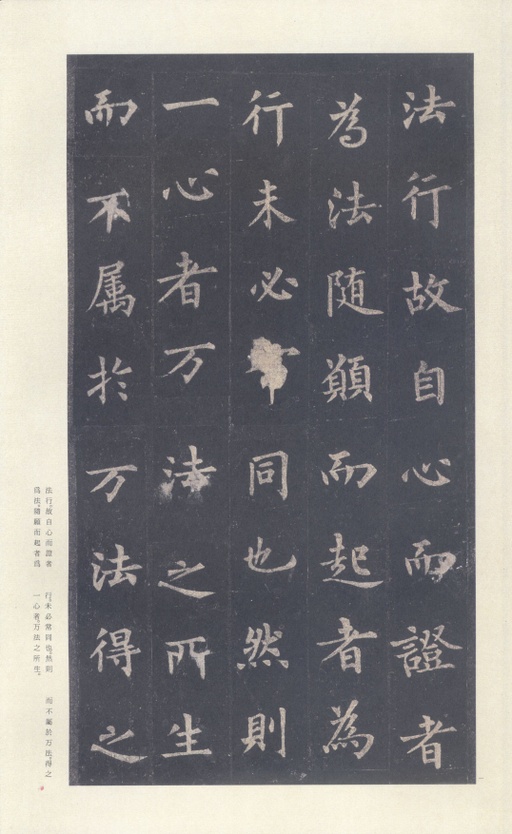 法行故自心而證者
為法随願而起者為
行未必常同也然則
一心者万法之所生
而不属於万法得之
法行。故自心而證者
爲法。隨願而起者爲
行。未必常同也。然則
一心者。万法之所生。
而不屬於万法。得之